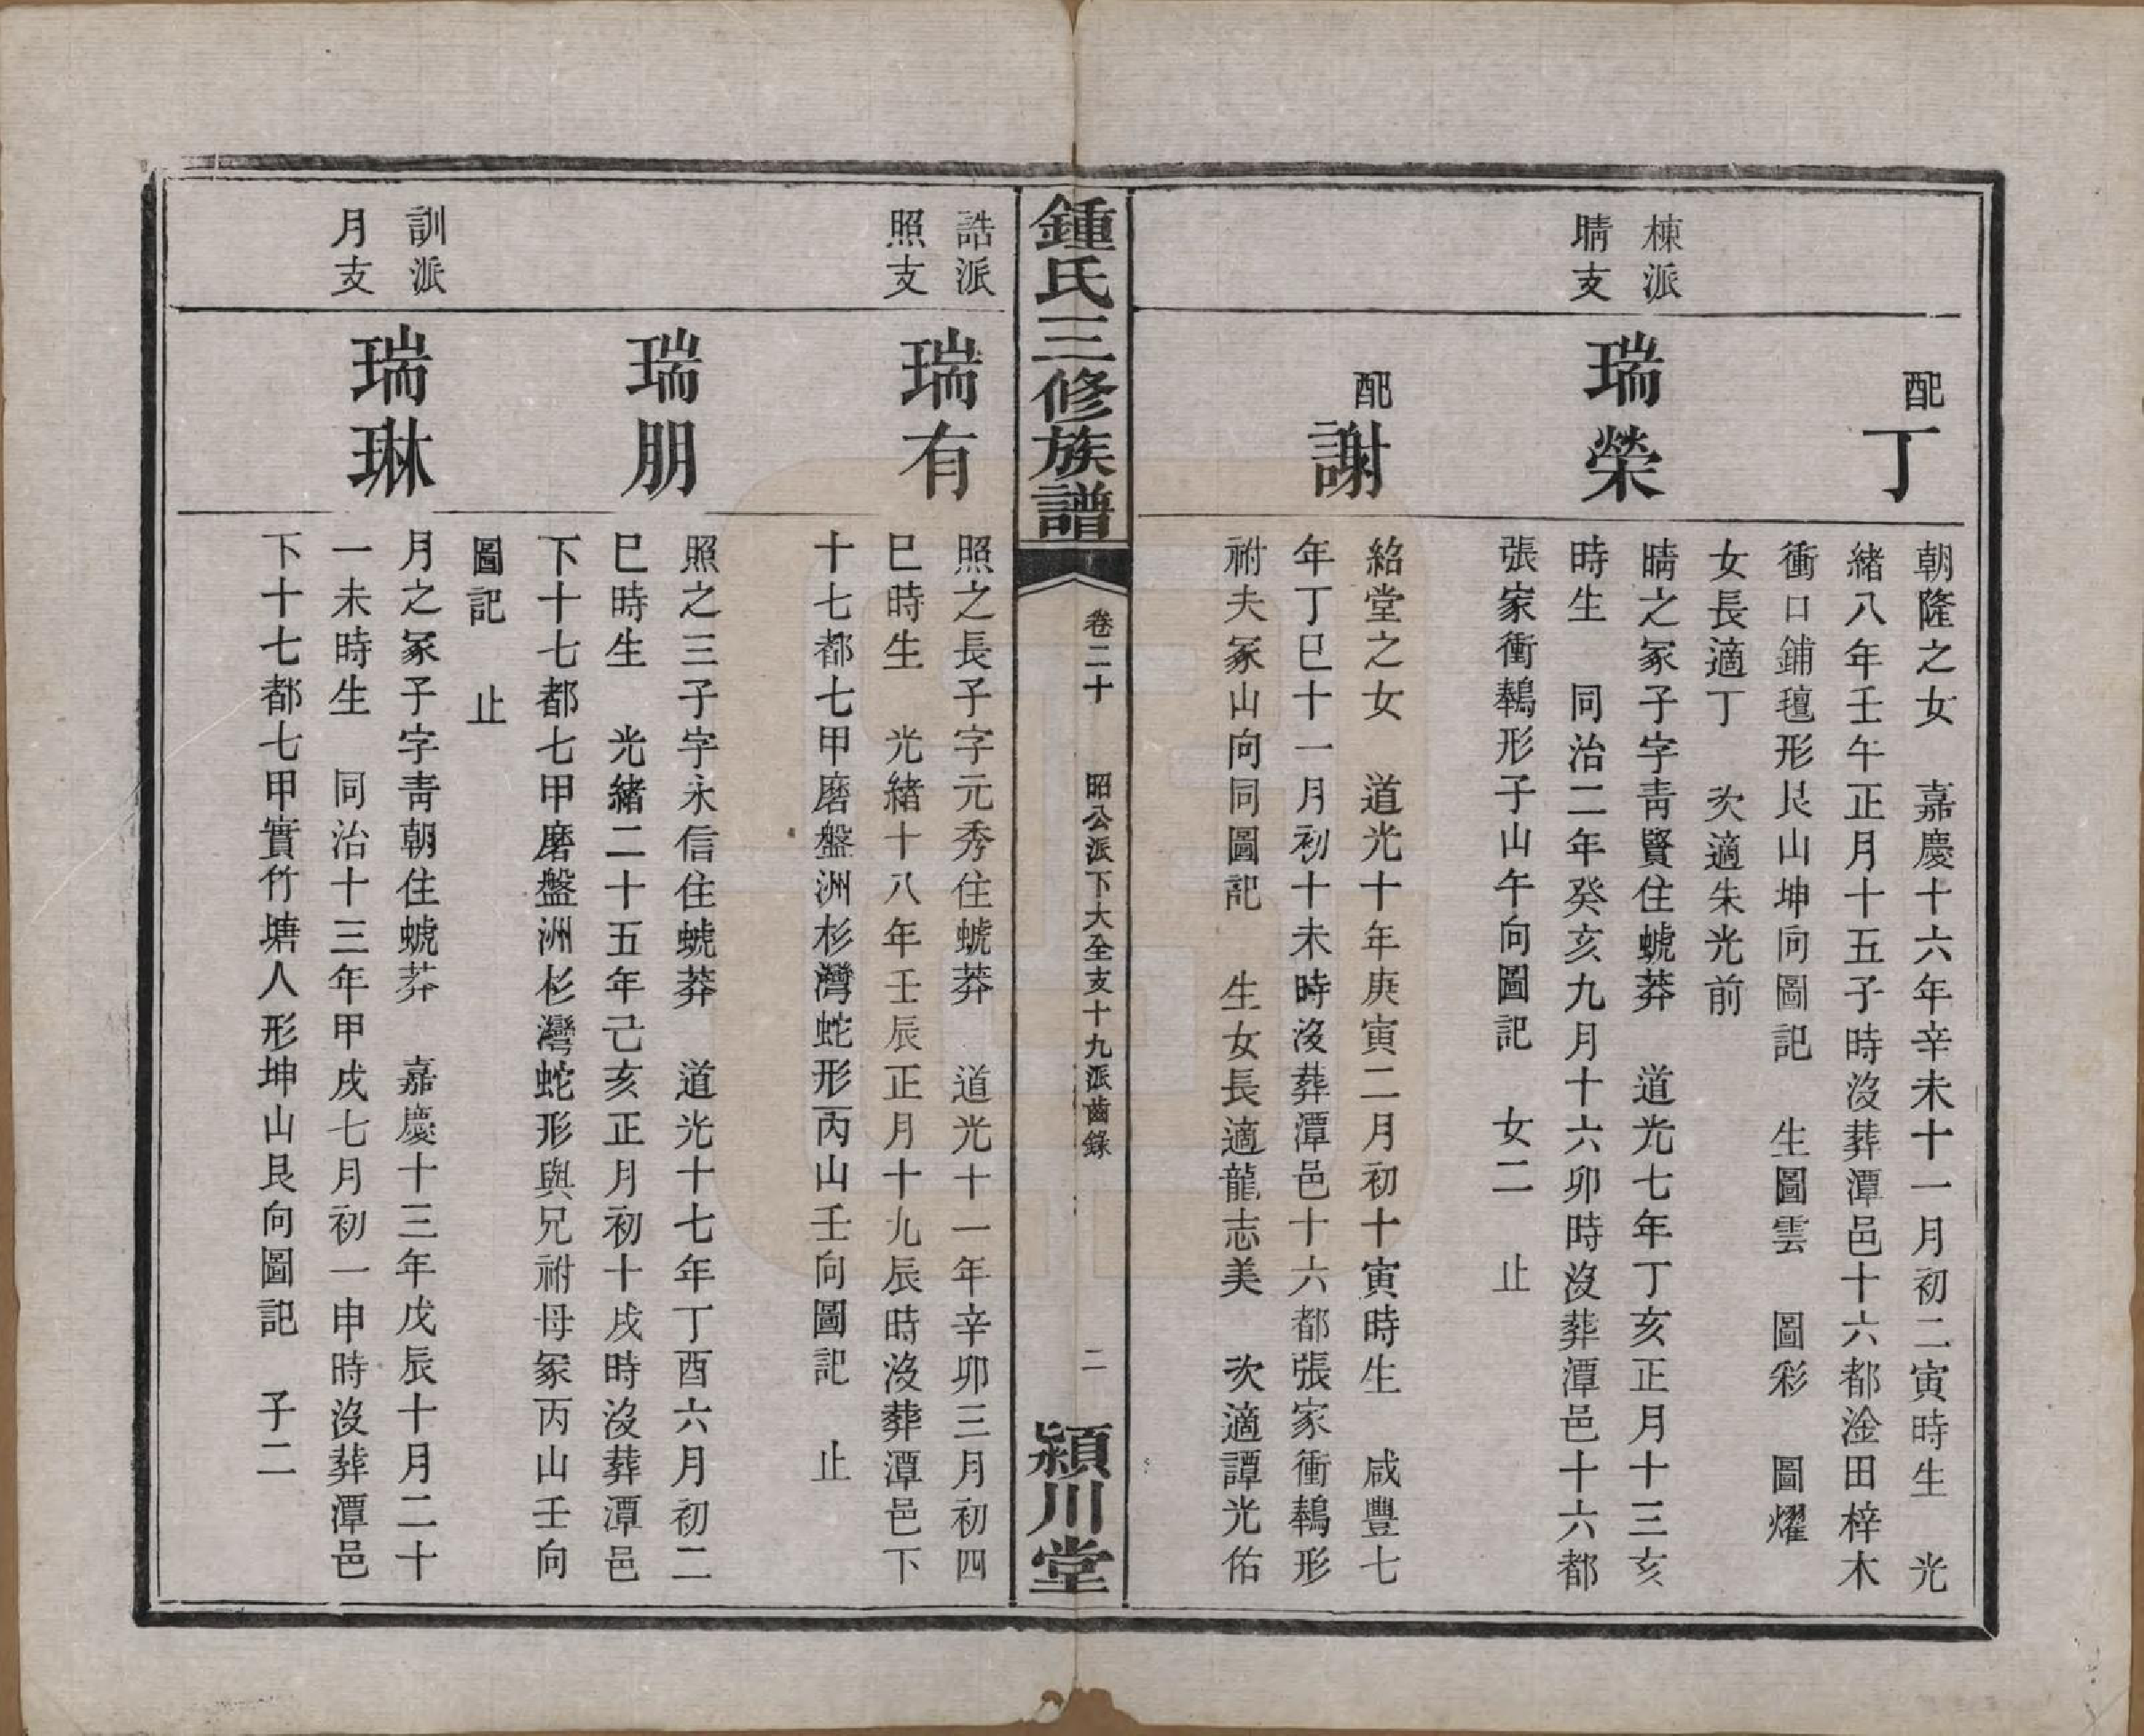 配丁
朝隆之女　嘉慶十六年辛未十一月初二寅時生　光
緒八年壬午正月十五子時沒葬潭邑十六都淦田梓木
衝口鋪氊形艮山坤向圖記　生圖雲　圖彩　圖燿
女長適丁　次適朱光前
棟派
晴支
瑞榮
晴之冢子字靑賢住螔莽　道光七年丁亥正月十三亥
時生　同治二年癸亥九月十六卯時沒葬潭邑十六都
張家衝鶈形子山午向圖記　女二　止
配謝
紹堂之女　道光十年庚寅二月初十寅時生　咸豐七
年丁巳十一月初十未時沒葬潭邑十六都張家衝鶈形
祔夫冢山向同圖記　生女長適龍志美　次適譚光佑
鍾氏三修族譜
卷二十　昭公派下大全支十九派齒錄
二
潁川堂
誥派
照支
瑞有
照之長子字元秀住螔莽　道光十一年辛卯三月初四
巳時生　光緒十八年壬辰正月十九辰時沒葬潭邑下
十七都七甲磨盤洲杉灣蛇形丙山壬向圖記　止
瑞朋
照之三子字永信住螔莽　道光十七年丁酉六月初二
巳時生　光緒二十五年己亥正月初十戌時沒葬潭邑
下十七都七甲磨盤洲杉灣蛇形與兄祔母冢丙山壬向
圖記　止
訓派
月支
瑞琳
月之冢子字靑朝住螔莽　嘉慶十三年戊辰十月二十
一未時生　同治十三年甲戌七月初一申時沒葬潭邑
下十七都七甲實竹塘人形坤山艮向圖記　子二